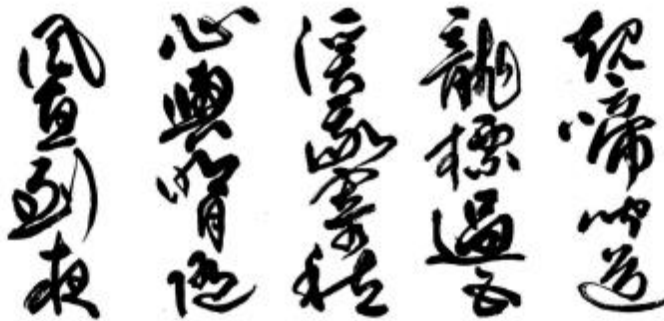 規啼聞道
龍標過五
溪我寄愁
心與明月隨
風直到夜